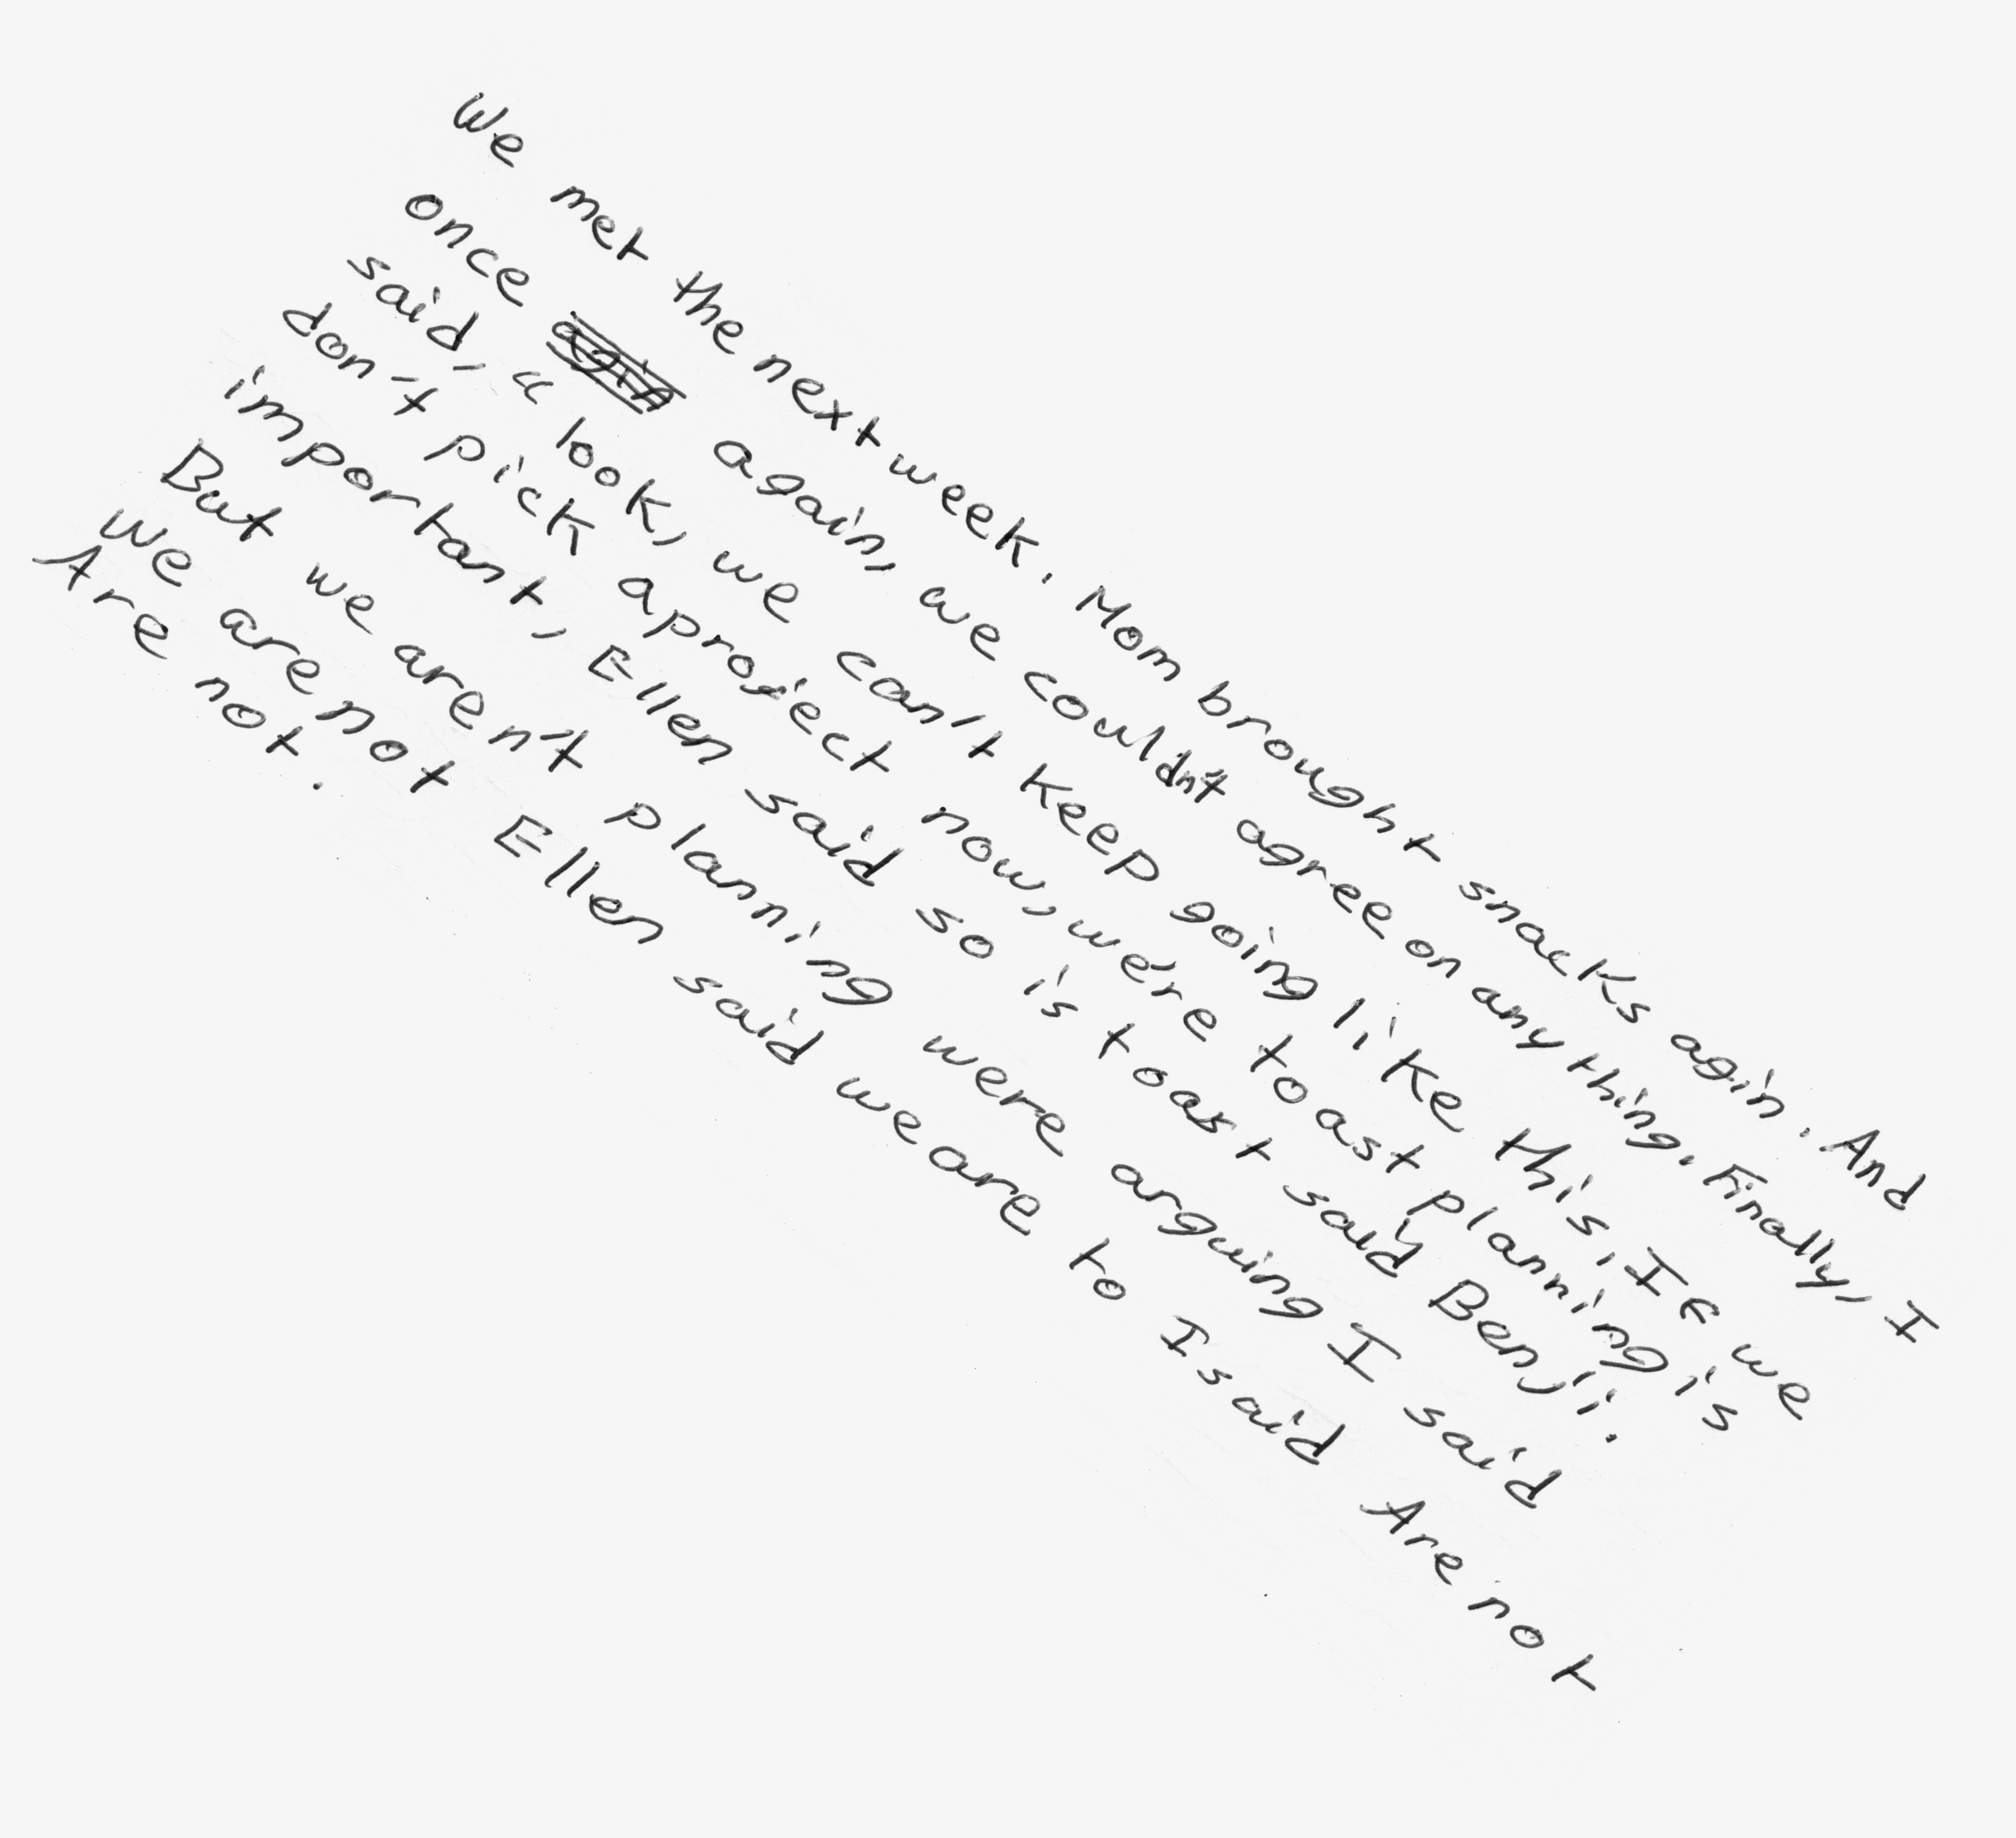 We met the next week. Mom brought snacks agin. And
once again, we couldn't agree on any thing. Finally, I
said, "look, we can't keep going like this. If we
don't pick a project now, we're toast planning is
important, Ellen said so is toast said Benji.
But we aren't planning were arguing I said
we are not Ellen said we are to I said Are not
Are not.